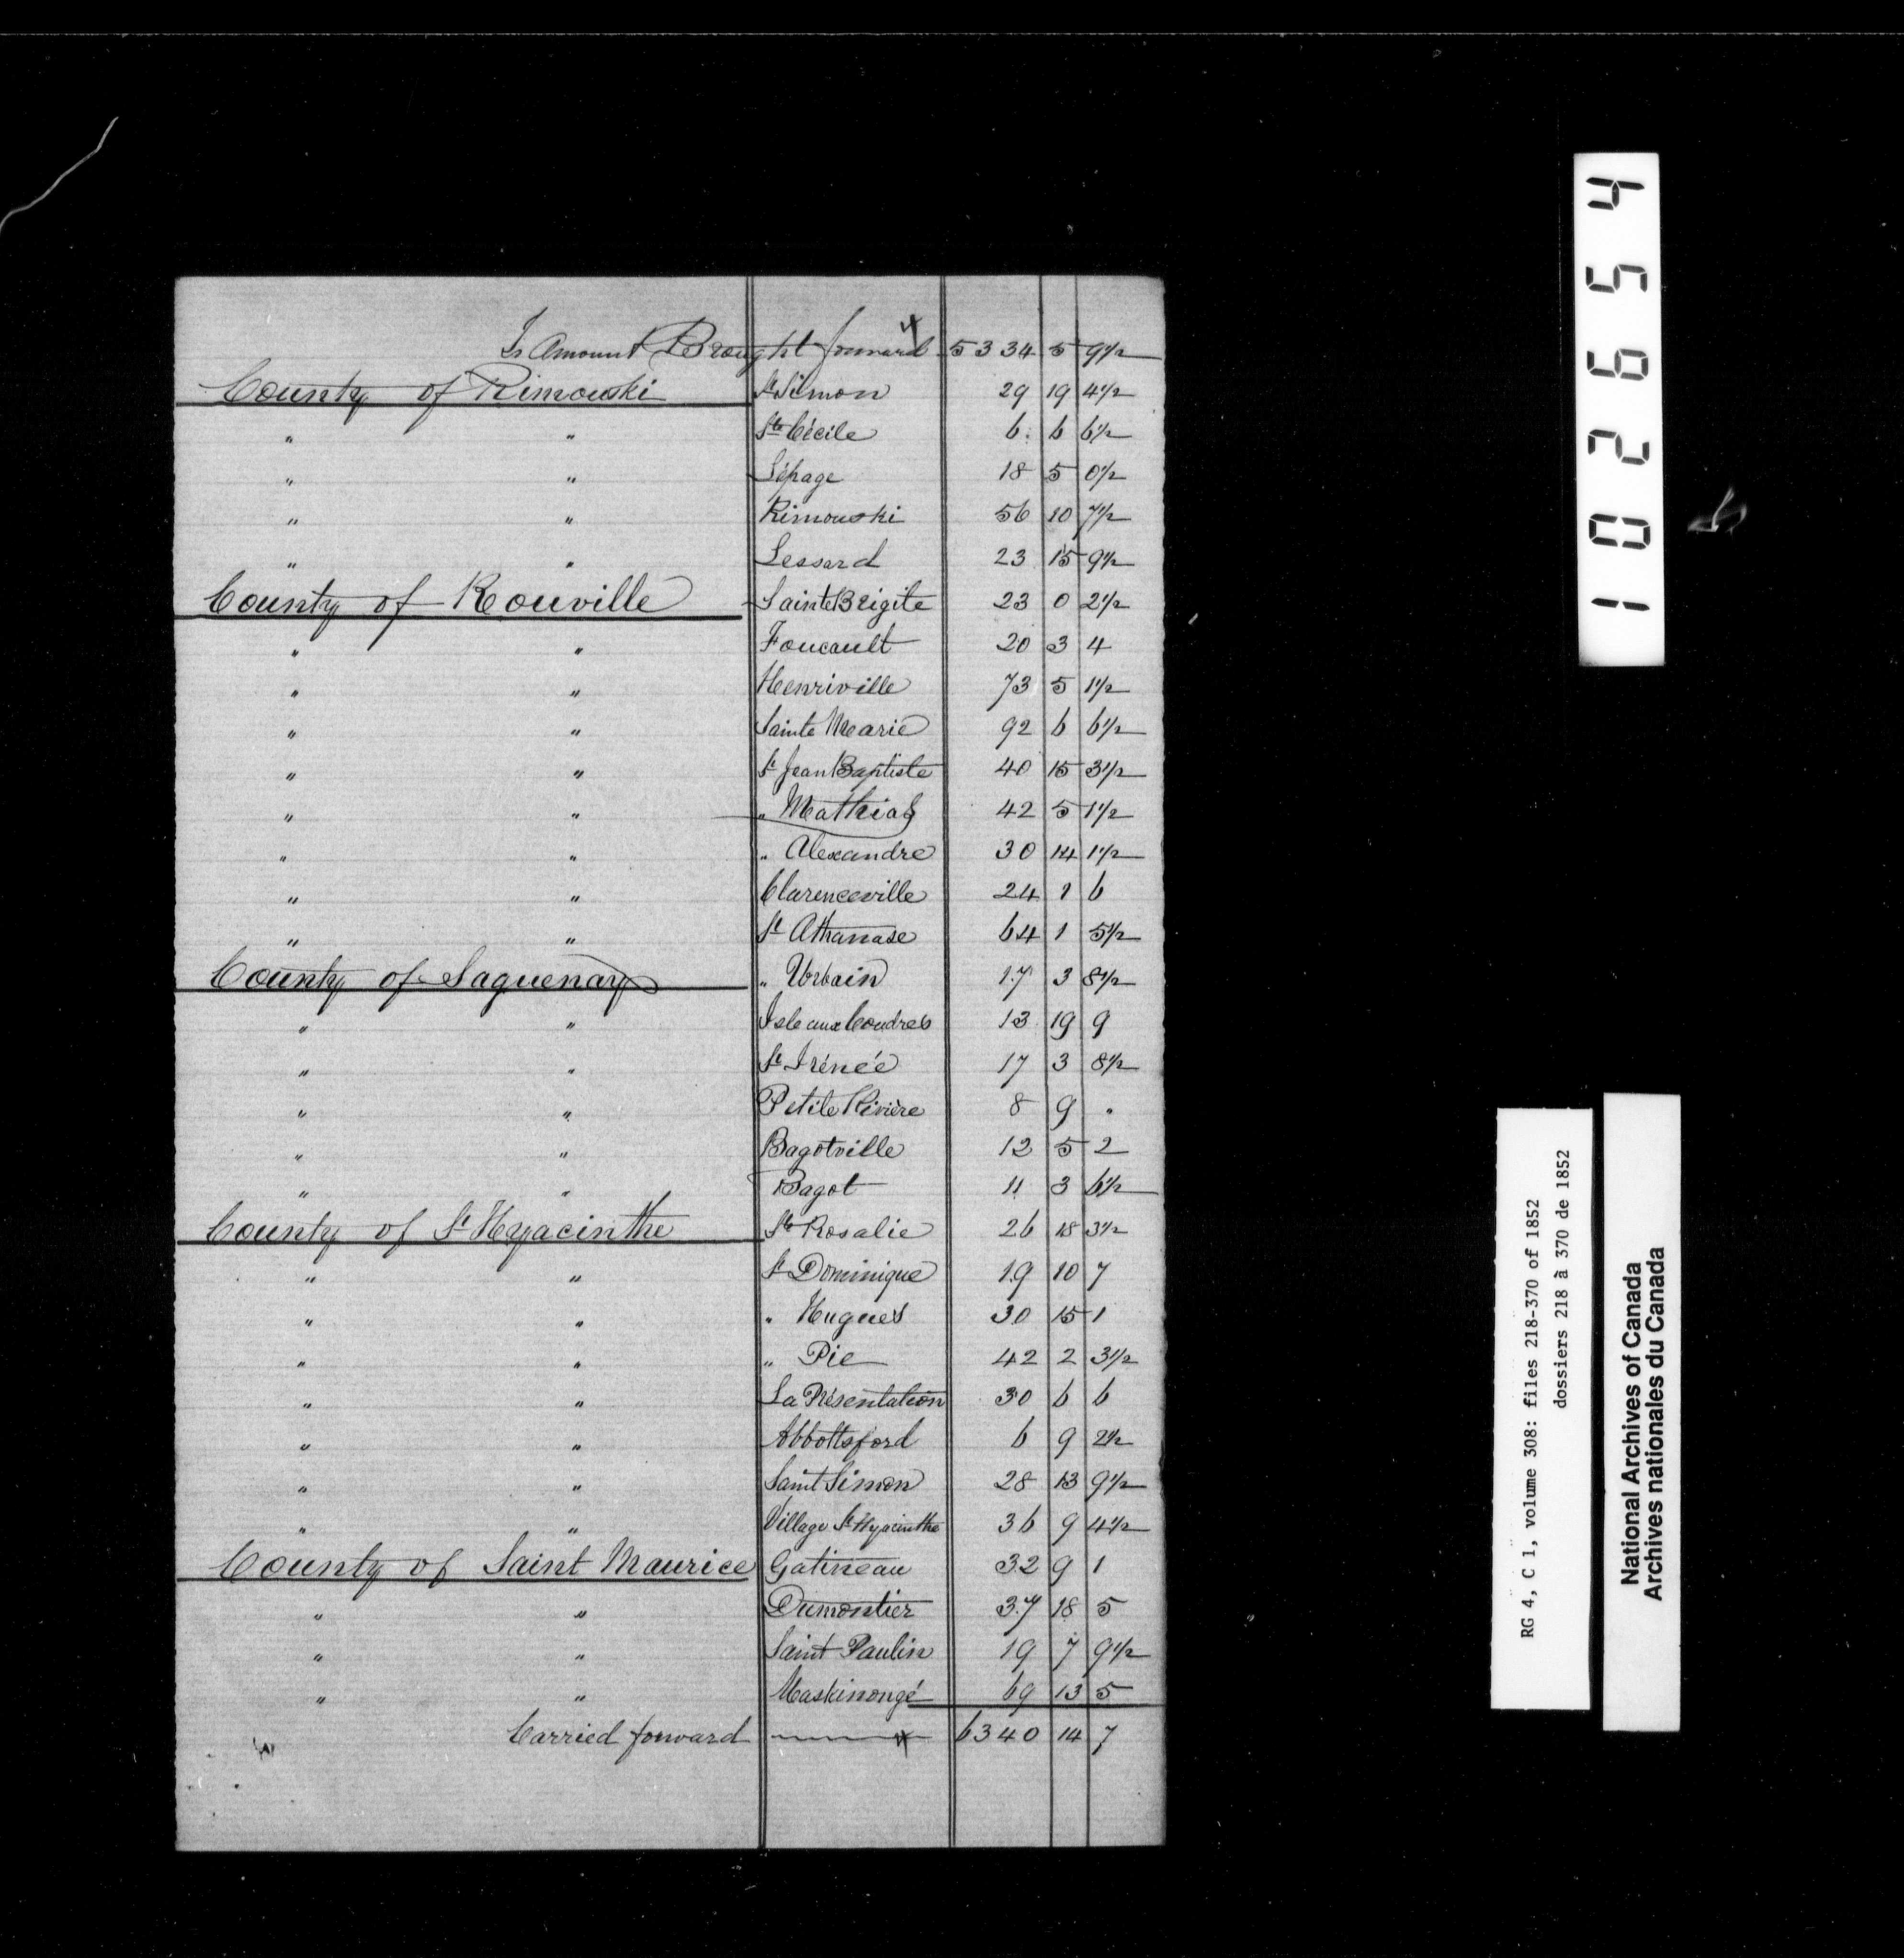 To Amount Brought forward 5334 5 9½
County of Rimouski St Simon 29 19 4½
" " Ste Cécile 6 6 6½
" " Lépage 18 5 0½
" " Rimouski 56 10 7½
" " Lessard 23 15 9½
County of Rouville Sainte Brigite 23 0 2½
" " Foucault 20 3 4
" " Henriville 73 5 1½
" " Sainte Marie 92 6 6½
" " St Jean Baptiste 40 15 3½
" " " Mathias 42 5 1½
" " " Alexandre 30 14 1½
" " Clarenceville 24 1 6
" " St Athanase 64 1 5½
County of Saguenay " Urbain 17 3 8½
" " Isle aux Coudres 13 19 9
" " St Irénée 17 3 8½
" " Petite Rivière 8 9 "
" " Bagotville 12 5 2
" " Bagot 11 3 6½
County of St Hyacinthe Ste Rosalie 26 18 3½
" " St Dominique 19 10 7
" " " Hugues 30 15 1
" " " Pie 42 2 3½
" " La Présentation 30 6 6
" " Abbottsford 6 9 2½
" " Saint Simon 28 13 9½
" " Village St Hyacinthe 36 9 4½
County of Saint Maurice Gatineau 32 9 1
" " Dumontier 37 18 5
" " Saint Paulin 19 7 9½
" " Maskinongé 69 13 5
Carried forward 6340 14 7
102654
RG 4, C 1, volume 308: files 218-370 of 1852
dossiers 218 à 370 de 1852
National Archives of Canada
Archives nationales du Canada